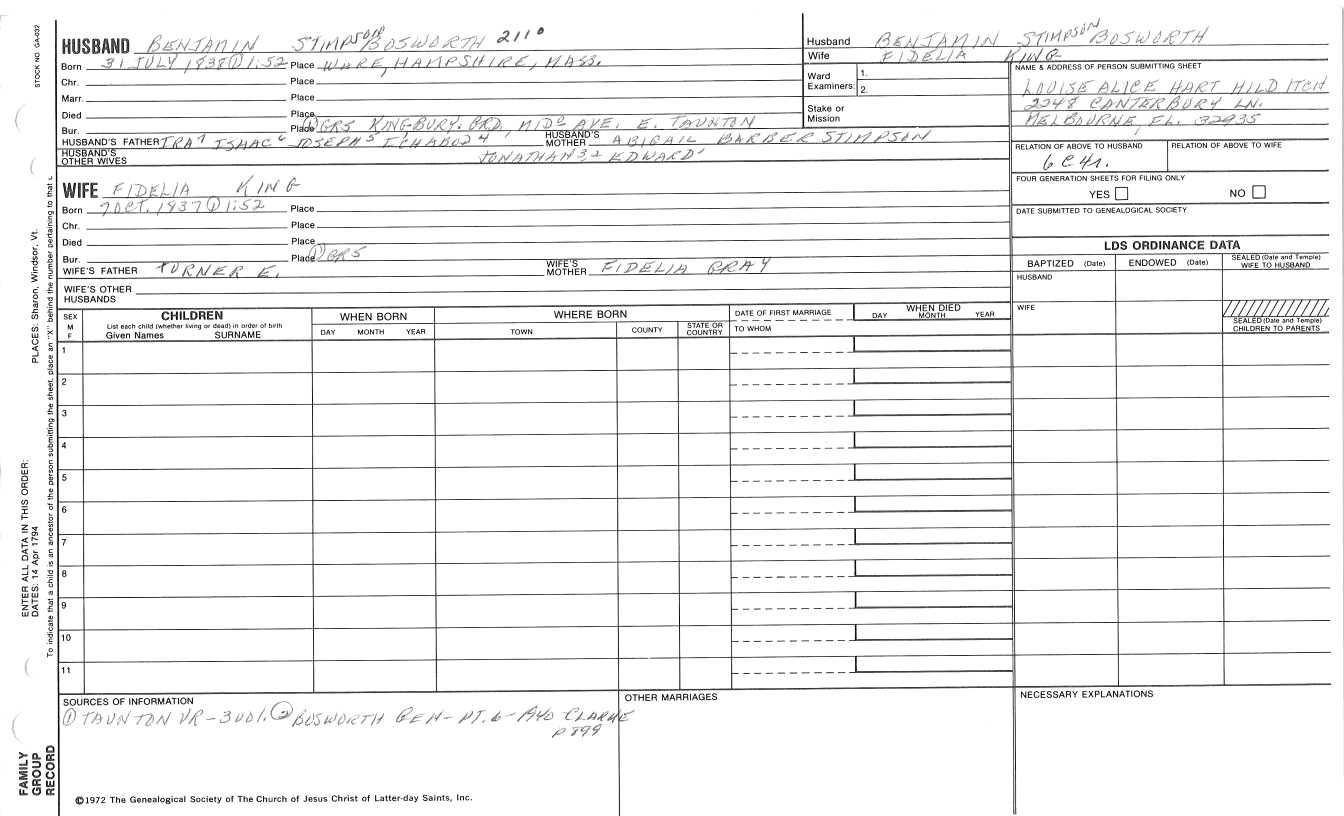 STOCK NO. GA-032
PLACES: Sharon, Windsor, Vt.
ENTER ALL DATA IN THIS ORDER:
DATES: 14 Apr 1794
To indicate that a child is an ancestor of the person submitting the sheet, place an "X" behind the number pertaining to that
FAMILY GROUP RECORD
HUSBAND BENJAMIN STIMPSON BOSWORTH 2110
Born 31 JULY 1838 ① 1:52 Place WARE, HAMPSHIRE, MASS.
Chr. Place
Marr. Place
Died Place
Bur. Place ① GRS KINGBURY. GRD, MIDO AVE. E. TAUNTON
HUSBAND'S FATHER IRA 7 ISAAC 6 JOSEPH 5 ICHABOD 4 HUSBAND'S MOTHER ABIGAIL BARBER STIMPSON
HUSBAND'S OTHER WIVES JONATHAN 3,2 EDWARD 1
WIFE FIDELIA KING
Born 7 OCT. 1837 ① 1:52 Place
Chr. Place
Died Place
Bur. Place ① GRS
WIFE'S FATHER TURNER E. WIFE'S MOTHER FIDELIA GRAY
WIFE'S OTHER HUSBANDS
Husband BENJAMIN STIMPSON BOSWORTH
Wife FIDELIA KING
Ward Examiners: 1.
2.
Stake or Mission
NAME & ADDRESS OF PERSON SUBMITTING SHEET
LOUISE ALICE HART HILDITCH
2248 CANTERBURY LN.
MELBOURNE, FL. 32935
RELATION OF ABOVE TO HUSBAND RELATION OF ABOVE TO WIFE
6C4r.
FOUR GENERATION SHEETS FOR FILING ONLY
YES NO
DATE SUBMITTED TO GENEALOGICAL SOCIETY
LDS ORDINANCE DATA
BAPTIZED (Date) ENDOWED (Date) SEALED (Date and Temple) WIFE TO HUSBAND
HUSBAND
WIFE
SEALED (Date and Temple) CHILDREN TO PARENTS
SEX M F CHILDREN WHEN BORN WHERE BORN DATE OF FIRST MARRIAGE WHEN DIED
List each child (whether living or dead) in order of birth
Given Names SURNAME DAY MONTH YEAR TOWN COUNTY STATE OR COUNTRY TO WHOM DAY MONTH YEAR
1
2
3
4
5
6
7
8
9
10
11
SOURCES OF INFORMATION
① TAUNTON VR-3 VOL. ② BOSWORTH GEN- PT. 6- 1940 CLARKE
P 899
OTHER MARRIAGES
NECESSARY EXPLANATIONS
©1972 The Genealogical Society of The Church of Jesus Christ of Latter-day Saints, Inc.